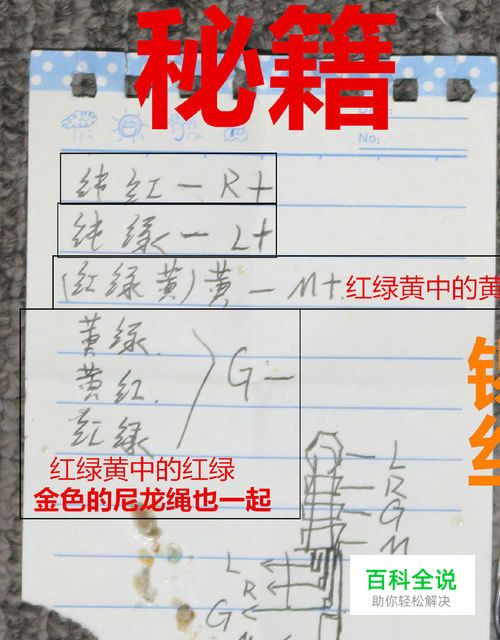 秘籍
No:
纯红一R+
纯绿一L+
(红绿黄)黄一M+
红绿黄中的黄
黄绿
黄红
红绿
G一
红绿黄中的红绿
金色的尼龙绳也一起
L
R
G
M
L
R
G
百科全说
助你轻松解决